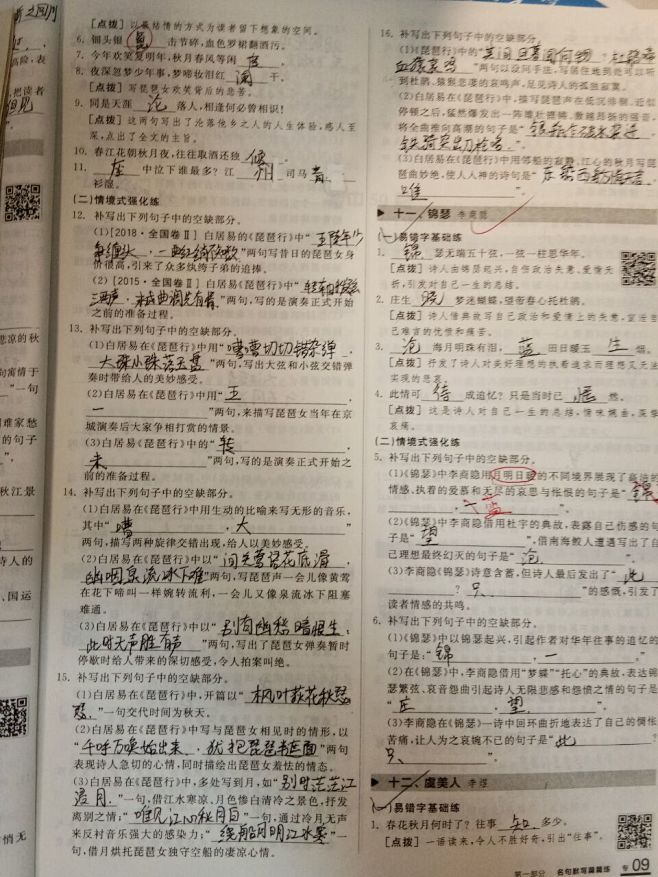 [点拨] 以最恰情的方式为读者留下想象的空间。
6. 钿头银 篦 击节碎,血色罗裙翻酒污。
7. 今年欢笑复明年,秋月春风等闲 度 。
8. 夜深忽梦少年事,梦啼妆泪红 阑 干。
[点拨] 写琵琶女欢笑背后的悲苦。
9. 同是天涯 沦 落人,相逢何必曾相识!
[点拨] 这两句写出了沦落他乡之人的人生体验,感人至
深,点出了全文的主旨。
10. 春江花朝秋月夜,往往取酒还独 倾 。
11. 座 中泣下谁最多?江 州 司马 青
衫湿。
(二)情境式强化练
12. 补写出下列句子中的空缺部分。
(1)[2018·全国卷Ⅱ] 白居易的《琵琶行》中“ 五陵年少
争缠头 , 一曲红绡不知数 ”两句写昔日的琵琶女身
价很高,引来了众多纨绔子弟的追捧。
(2)[2015·全国卷Ⅱ] 白居易《琵琶行》中“ 转轴拨弦
三两声 , 未成曲调先有情 ”两句,写的是演奏正式开始
之前的准备过程。
13. 补写出下列句子中的空缺部分。
(1)白居易在《琵琶行》中用“ 嘈嘈切切错杂弹 ,
大珠小珠落玉盘 ”两句,写出大弦和小弦交错弹
奏时带给人的美妙感受。
(2)白居易在《琵琶行》中用“ 五 ,
一 ”两句,来描写琵琶女当年在京
城演奏后大家争相打赏的情景。
(3)白居易《琵琶行》中的“ 转 ,
未 ”两句,写的是演奏正式开始之
前的准备过程。
14. 补写出下列句子中的空缺部分。
(1)白居易在《琵琶行》中用生动的比喻来写无形的音乐,
其中“ 嘈 , 大 ”
两句,描写两种旋律交错出现,给人以美妙感受。
(2)白居易在《琵琶行》中以“ 间关莺语花底滑 ,
幽咽泉流冰下难 ”两句,写琵琶声一会儿像黄莺
在花下啼叫一样婉转流利,一会儿又像泉流冰下阻塞
难通。
(3)白居易在《琵琶行》中以“ 别有幽愁暗恨生 ,
此时无声胜有声 ”两句,写出了琵琶女弹奏暂时
停歇时给人带来的深切感受,令人拍案叫绝。
15. 补写出下列句子中的空缺部分。
(1)白居易在《琵琶行》中,开篇以“ 枫叶荻花秋瑟
瑟 ”一句交代时间为秋天。
(2)白居易在《琵琶行》中写与琵琶女相见时的情形,以
“ 千呼万唤始出来 , 犹抱琵琶半遮面 ”两句
表现诗人急切的心情,同时描绘出琵琶女羞怯的情态。
(3)白居易在《琵琶行》中,多处写到月,如“ 别时茫茫江
浸月 ”一句,借江水寒凉、月色惨白清冷之景色,抒发
离别之情;“ 唯见江心秋月白 ”一句,通过冷月无声
来反衬音乐强大的感染力;“ 绕船月明江水寒 ”一
句,借月烘托琵琶女独守空船的凄凉心情。
16. 补写出下列句子中的空缺部分。
(1)《琵琶行》中的“ 其间旦暮闻何物 ? 杜鹃啼
血猿哀鸣 ”两句以设问手法,写居住地到处可以听
到杜鹃、猿猴悲凄的哀鸣声,足见诗人的孤独寂寞。
(2)白居易在《琵琶行》中,描写琵琶声在低沉徘徊、近似
停顿之后,猛然爆发出一阵雄壮铿锵、激越昂扬的强音,
将全曲推向高潮的句子是“ 银瓶乍破水浆迸 ,
铁骑突出刀枪鸣 ”。
(3)白居易在《琵琶行》中用邻船的寂静、江心的秋月写琵
琶曲妙绝,使人入神的诗句是“ 东船西舫悄无言 ,
唯 ”。
十一、锦瑟 李商隐
(一)易错字基础练
1. 锦 瑟无端五十弦,一弦一柱思华年。
[点拨] 诗人由锦瑟起兴,自伤政治失意、爱情失
折,引发对自己一生的总结。
2. 庄生 晓 梦迷蝴蝶,望帝春心托杜鹃。
[点拨] 诗人借典故写自己政治和爱情上的失意,宣泄自
己难言的忧愤和痛苦。
3. 沧 海月明珠有泪, 蓝 田日暖玉 生 烟。
[点拨] 抒发了诗人对美好理想的执着追求而理想又无法
实现的悲哀。
4. 此情可 待 成追忆?只是当时已 惘 然。
[点拨] 这是诗人对自己一生的总结,情味绵曲,莫誉
哀痛。
(二)情境式强化练
5. 补写出下列句子中的空缺部分。
(1)《锦瑟》中李商隐用月明日暖的不同境界展现了高洁的
情感、执着的爱慕和无尽的哀思与怅恨的句子是“ 锦
, 一 蓝 ”。
(2)《锦瑟》中李商隐借用杜宇的典故,表露自己伤感的句
子是“ 望 ”,借南海鲛人遭遇写出了自
己理想最终幻灭的句子是“ 沧 ”。
(3)李商隐《锦瑟》诗意含蓄,但诗人最后发出了“ 此
? 只 ”的感慨,引发了
读者情感的共鸣。
6. 补写出下列句子中的空缺部分。
(1)《锦瑟》中以锦瑟起兴,引起作者对华年往事的追忆的
句子是:“ 锦 , 一 ”。
(2)在《锦瑟》中,李商隐借用“梦蝶”“托心”的典故,表达锦
瑟繁弦、哀音怨曲引起诗人无限悲感和怨愤之情的句子是
“ 庄 , 望 ”。
(3)李商隐在《锦瑟》一诗中回环曲折地表达了自己的惆怅
苦痛,让人为之哀婉不已的句子是“ 此 ?
只 ”。
十二、虞美人 李煜
(一)易错字基础练
1. 春花秋月何时了?往事 知 多少。
[点拨] 一语读来,令人不胜好奇,引出“往事”。
第一部分 名句默写篇篇练 专 09